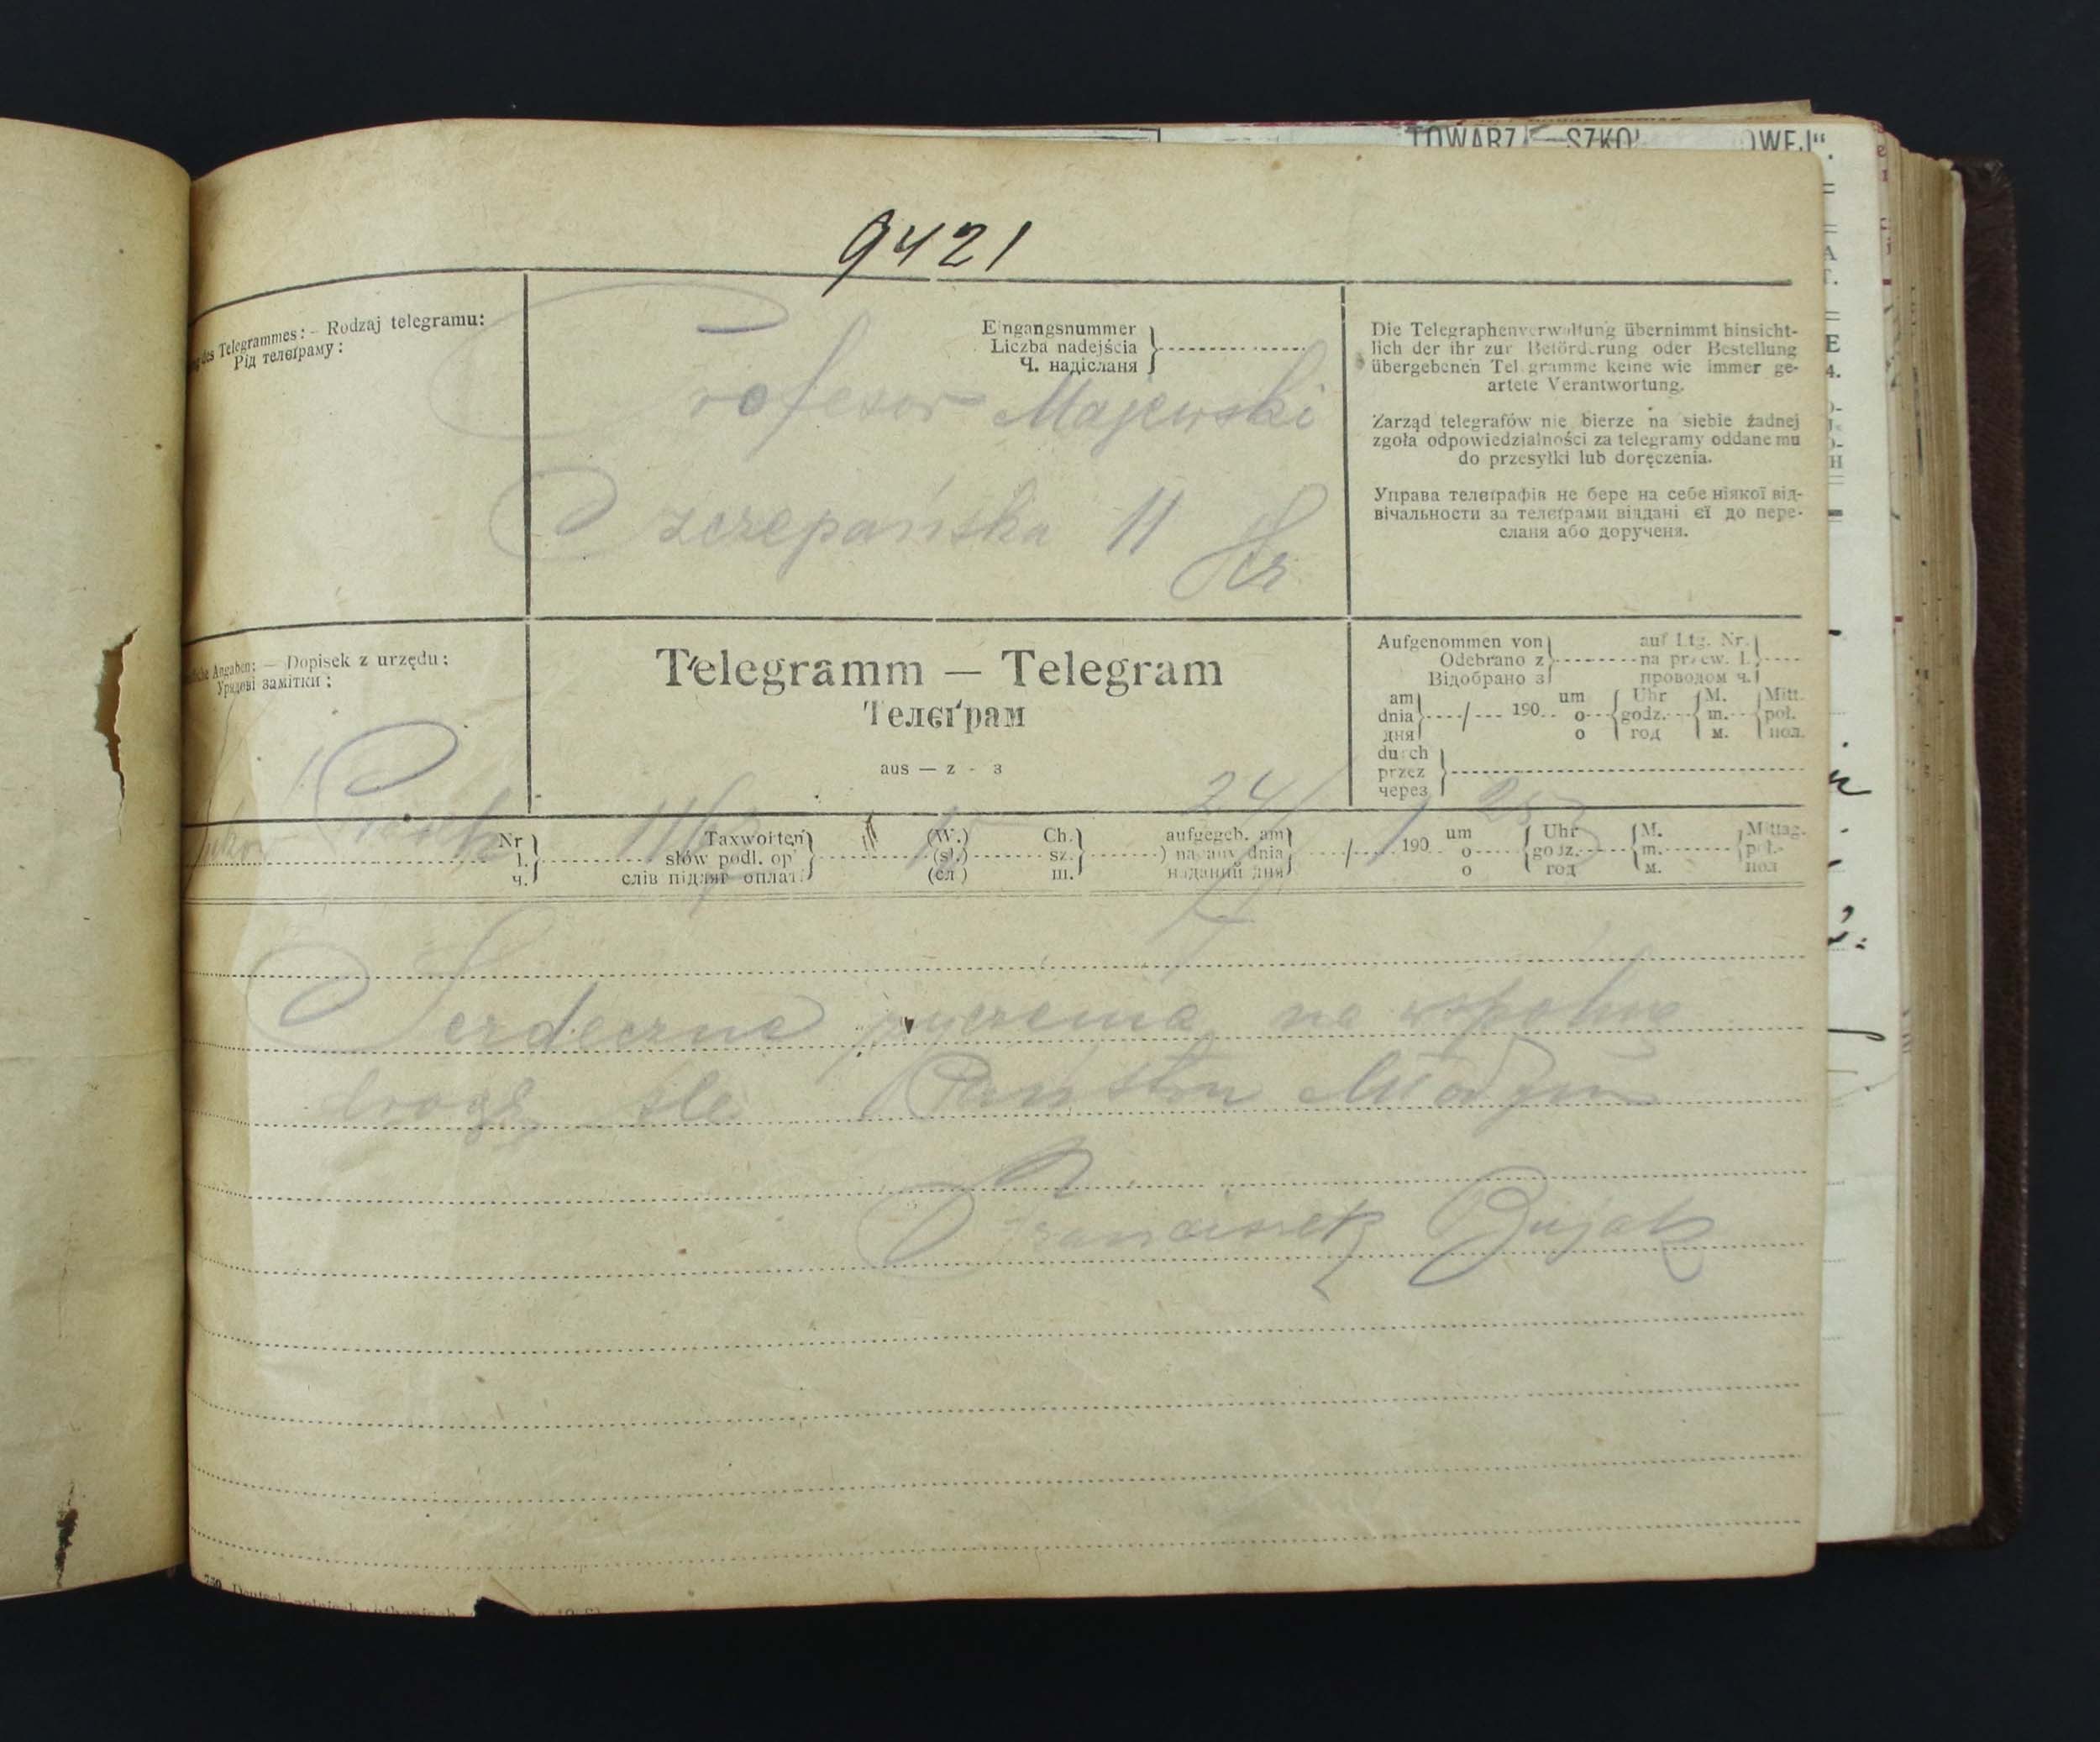 TOWARZ SZKO OWEJ“.
9421
des Telegrammes: – Rodzaj telegramu:
Рід телєґраму:
Eingangsnummer
Liczba nadejścia
Ч. надісланя
Profesor Majewski
Szczepańska 11 Kr
Die Telegraphenverwaltung übernimmt hinsicht-
lich der ihr zur Beförderung oder Bestellung
übergebenen Telegramme keine wie immer ge-
artete Verantwortung.
Zarząd telegrafów nie bierze na siebie żadnej
zgoła odpowiedzialności za telegramy oddane mu
do przesyłki lub doręczenia.
Управа телєґрафів не бере на себе ніякої від-
вічальности за телєґрами віддані єї до пере-
сланя або дорученя.
Angaben: — Dopisek z urzędu:
Урядові замітки:
Telegramm — Telegram
Телєґрам
aus — z - з
Aufgenommen von auf Ltg. Nr.
Odebrano z na przew. l.
Відобрано з проводом ч.
am um Uhr M. Mitt.
dnia / 190 o godz. m. poł.
дня о год м. пол.
durch
przez
через
24/ 1 25
Nr Taxworten (W.) Ch. aufgegeb. am um Uhr M. Mittag.
l. słów podl. op (sł.) sz. nadany dnia / 190 o godz. m. poł.
ч. слів підляг оплаті (сл) ш. наданий дня о год м. пол
Serdeczne życzenia na wspólną
drogę śle Państwu Młodym
Franciszek Bujak